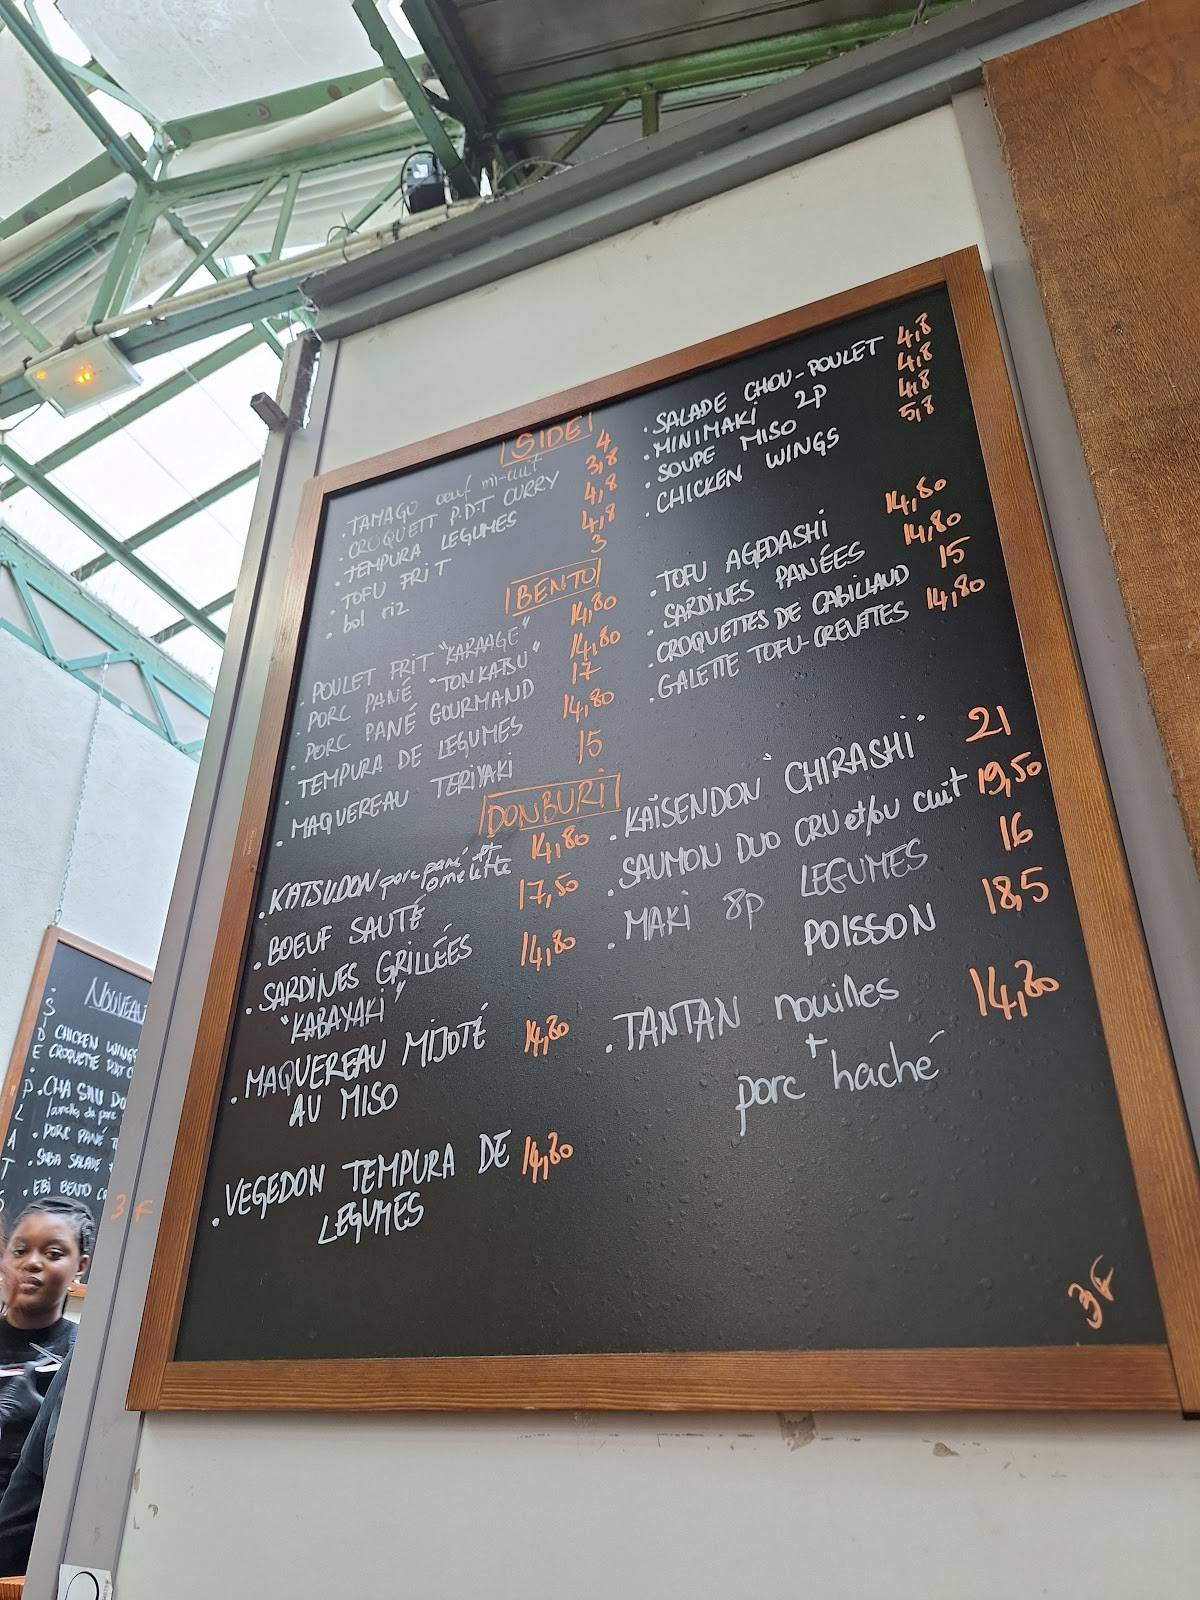 SIDE
. TAMAGO oeuf mi-cuit 4
. CROQUETT P.D.T CURRY 3,8
. TEMPURA LEGUMES 4,8
. TOFU FRIT 4,8
. bol riz 3
. SALADE CHOU-POULET 4,8
. MINIMAKI 2P 4,8
. SOUPE MISO 4,8
. CHICKEN WINGS 5,8
BENTO
. POULET FRIT "KARAAGE" 14,80
. PORC PANÉ "TONKATSU" 14,80
. PORC PANÉ GOURMAND 17
. TEMPURA DE LEGUMES 14,80
. MAQUEREAU TERIYAKI 15
. TOFU AGEDASHI 14,80
. SARDINES PANÉES 14,80
. CROQUETTES DE CABILLAUD 15
. GALETTE TOFU-CREVETTES 14,80
DONBURI
. KATSUDON porc pané et omelette 14,80
. BOEUF SAUTÉ 17,50
. SARDINES GRILLÉES 14,80
"KABAYAKI"
. MAQUEREAU MIJOTÉ 14,80
AU MISO
. VEGEDON TEMPURA DE 14,80
LEGUMES
. KAÏSENDON "CHIRASHI" 21
. SAUMON DUO CRU et/ou cuit 19,50
. MAKI 8P LEGUMES 16
POISSON 18,5
. TANTAN nouilles 14,80
+
porc haché
3F
NOUVEAU
SIDE
CHICKEN WINGS
CROQUETTE
PLATS
. CHA SHU DO
. PORC PANÉ
. SOBA SALADE
. EBI BENTO
3 F